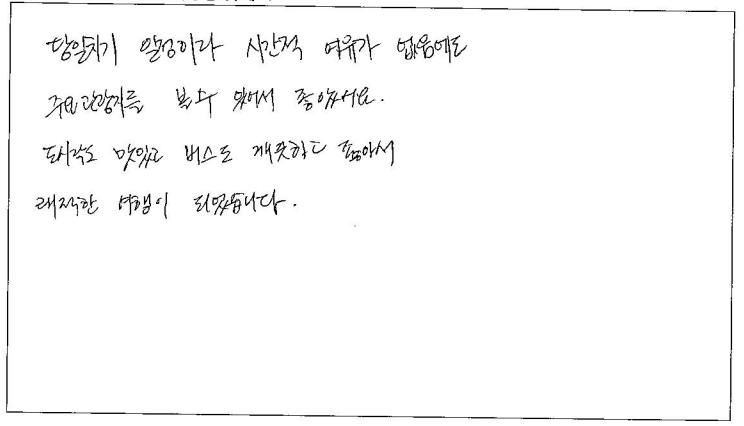 당일치기 일정이라 시간적 여유가 없음에도
주요관광지를 볼수 있어서 좋았어요.
도시락도 맛있고 버스도 깨끗하고 좋아서
쾌적한 여행이 되었습니다.